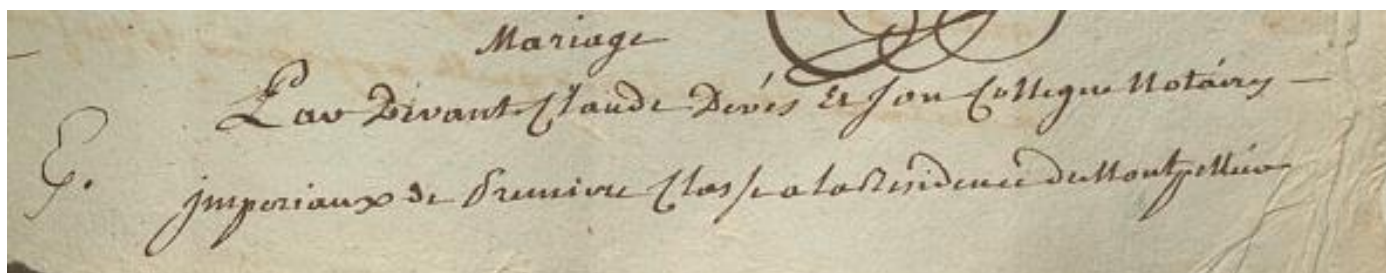 Mariage
Par Devant Claude Devés Et Son Collegue Notáires
E. jmperiaux de Premiere Classe a la Residence de Montpellier